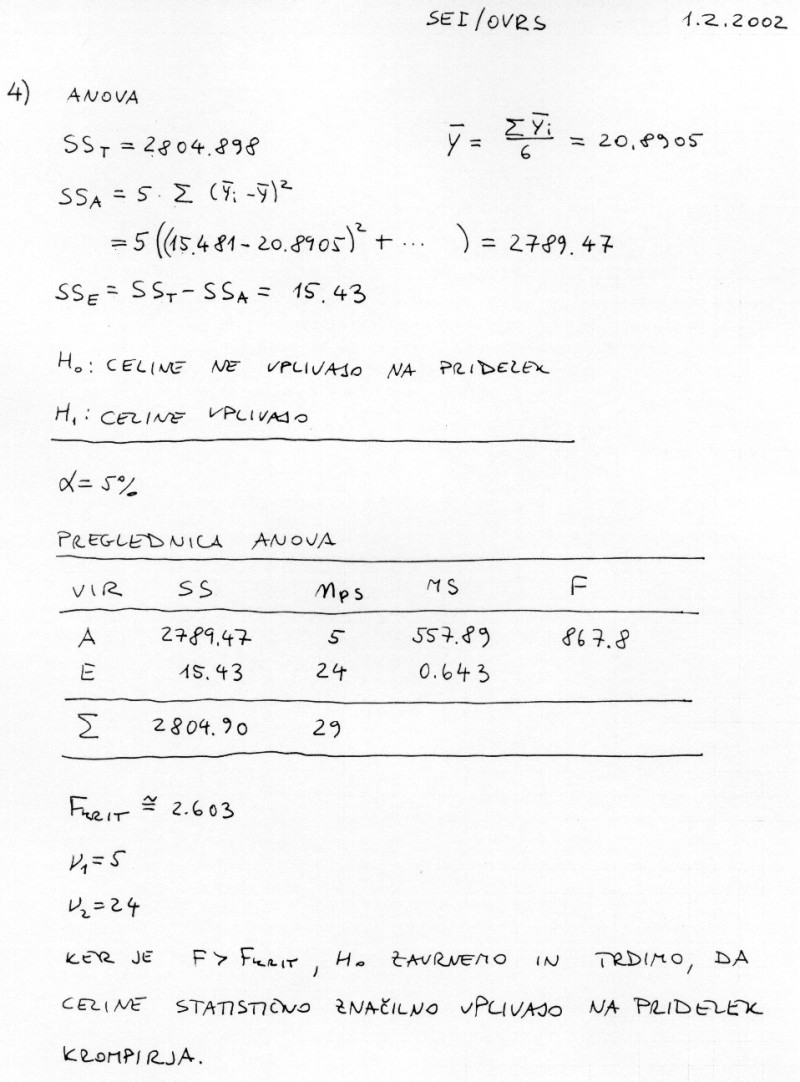 SEI/OVRS 1.2.2002
4) ANOVA
SS_T = 2804.898
ȳ = Σȳᵢ/6 = 20.8905
SS_A = 5 · Σ (ȳᵢ - ȳ)²
= 5((15.481 - 20.8905)² + ... ) = 2789.47
SS_E = SS_T - SS_A = 15.43
H₀: CELINE NE VPLIVAJO NA PRIDELEK
H₁: CELINE VPLIVAJO
α = 5%
PREGLEDNICA ANOVA
VIR SS nps MS F
A 2789.47 5 557.89 867.8
E 15.43 24 0.643
Σ 2804.90 29
F_KRIT ≅ 2.603
ν₁ = 5
ν₂ = 24
KER JE F > F_KRIT, H₀ ZAVRNEMO IN TRDIMO, DA
CELINE STATISTIČNO ZNAČILNO VPLIVAJO NA PRIDELEK
KROMPIRJA.